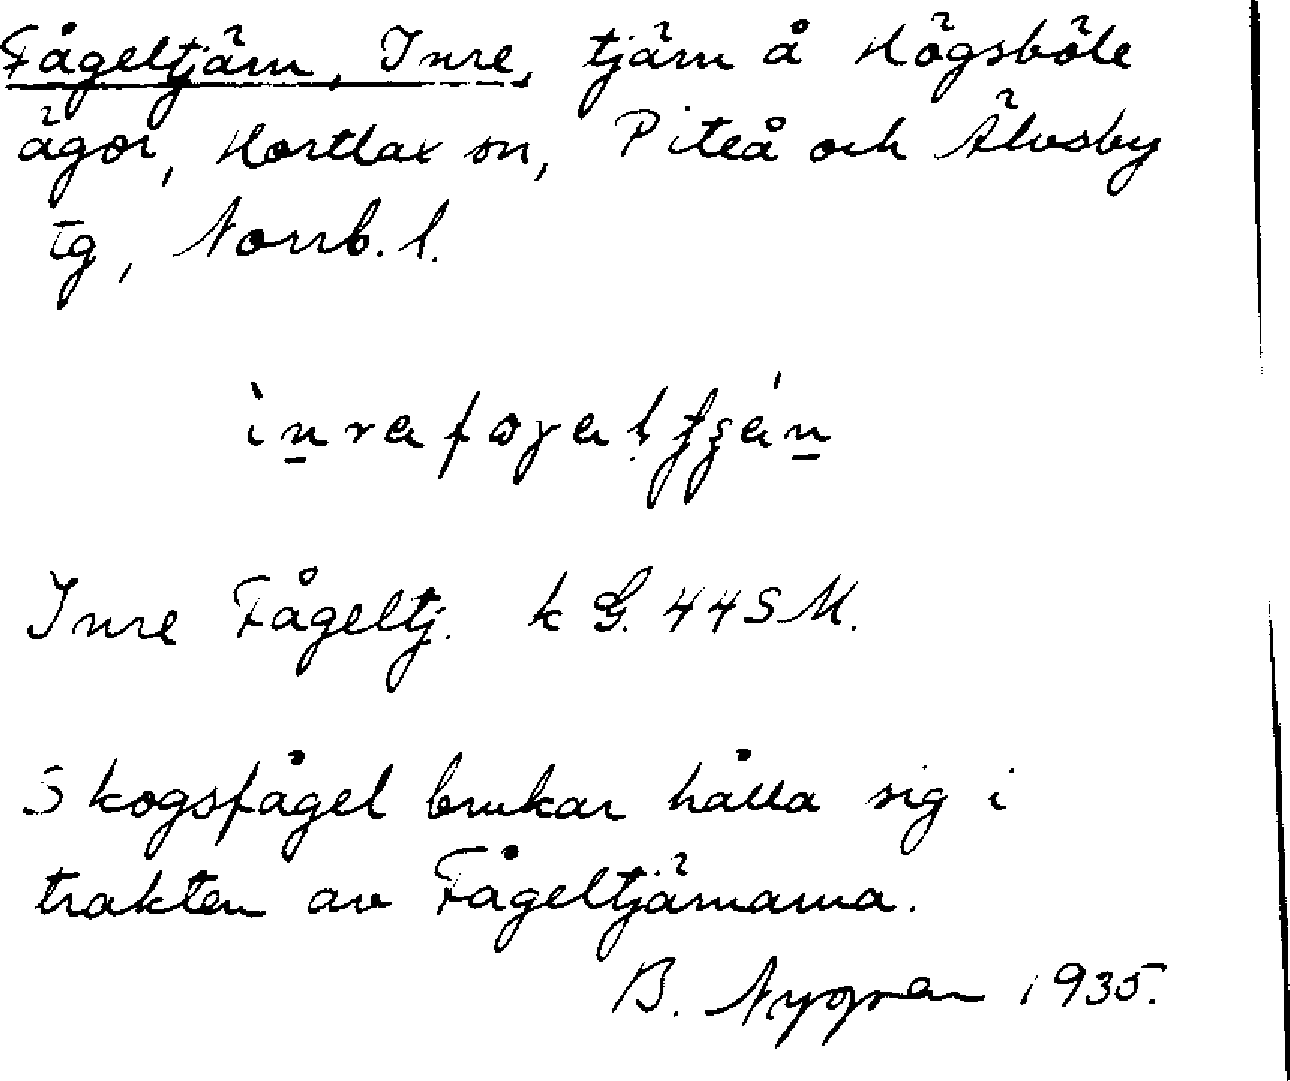 Fågeltjärn, Inre, tjärn å Högsböle
ägor, Hortlax sn, Piteå och Älvsby
tg, Norrb. l.
Inre Fågeltj. k G. 44 S M.
Skogsfågel brukar hålla sig i
trakten av Fågeltjärnarna.
B. Nygren 1935.